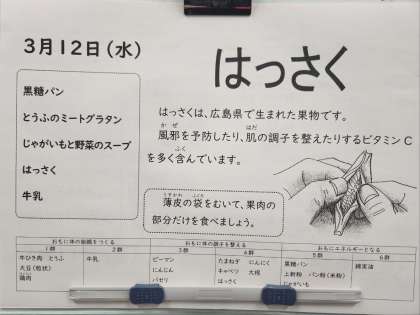 3月12日(水)
はっさく
黒糖パン
とうふのミートグラタン
じゃがいもと野菜のスープ
はっさく
牛乳
はっさくは、広島県で生まれた果物です。
かぜ はだ
風邪を予防したり、肌の調子を整えたりするビタミンC
ふく
を多く含んでいます。
うすかわ ふくろ
薄皮の袋をむいて、果肉の
部分だけを食べましょう。
おもに体の組織をつくる おもに体の調子を整える おもにエネルギーとなる
1群 2群 3群 4群 5群 6群
牛ひき肉 とうふ 牛乳 ピーマン たまねぎ にんにく 黒糖パン 綿実油
大豆(粒状) にんじん キャベツ 大根 上新粉 パン粉(米粉)
鶏肉 パセリ はっさく じゃがいも